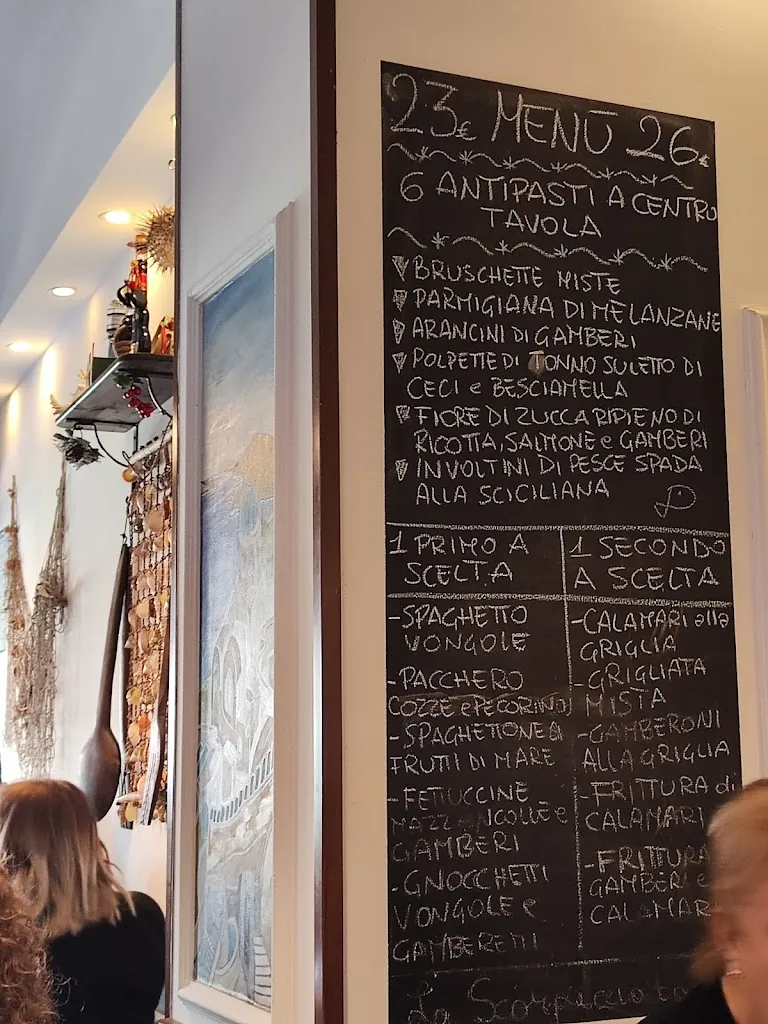 23€ MENÙ 26€
6 ANTIPASTI A CENTRO
TAVOLA
BRUSCHETTE MISTE
PARMIGIANA DI MELANZANE
ARANCINI DI GAMBERI
POLPETTE DI TONNO SU LETTO DI
CECI e BESCIAMELLA
FIORE DI ZUCCA RIPIENO DI
RICOTTA, SALMONE e GAMBERI
INVOLTINI DI PESCE SPADA
ALLA SCICILIANA
1 PRIMO A
SCELTA
-SPAGHETTO
VONGOLE
-PACCHERO
COZZE e PECORINO
-SPAGHETTONE AI
FRUTTI DI MARE
-FETTUCCINE
MAZZANCOLLE e
GAMBERI
-GNOCCHETTI
VONGOLE e
GAMBERETTI
1 SECONDO
A SCELTA
-CALAMARI alla
GRIGLIA
-GRIGLIATA
MISTA
-GAMBERONI
ALLA GRIGLIA
-FRITTURA di
CALAMARI
-FRITTURA
GAMBERI e
CALAMAR
La Scorpacciata